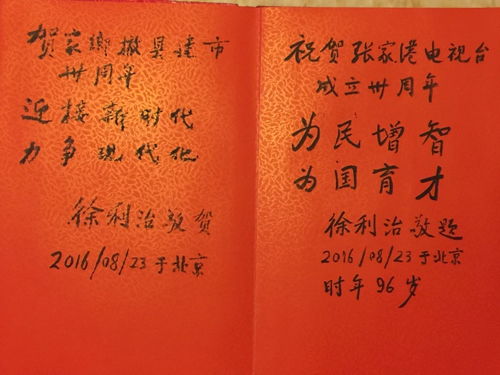 贺家鄉撤县建市
卅周年
迎接新时代
力争现代化
徐利治敬贺
2016/08/23于北京
祝贺张家港电视台
成立卅周年
为民增智
为国育才
徐利治敬题
2016/08/23于北京
时年96岁